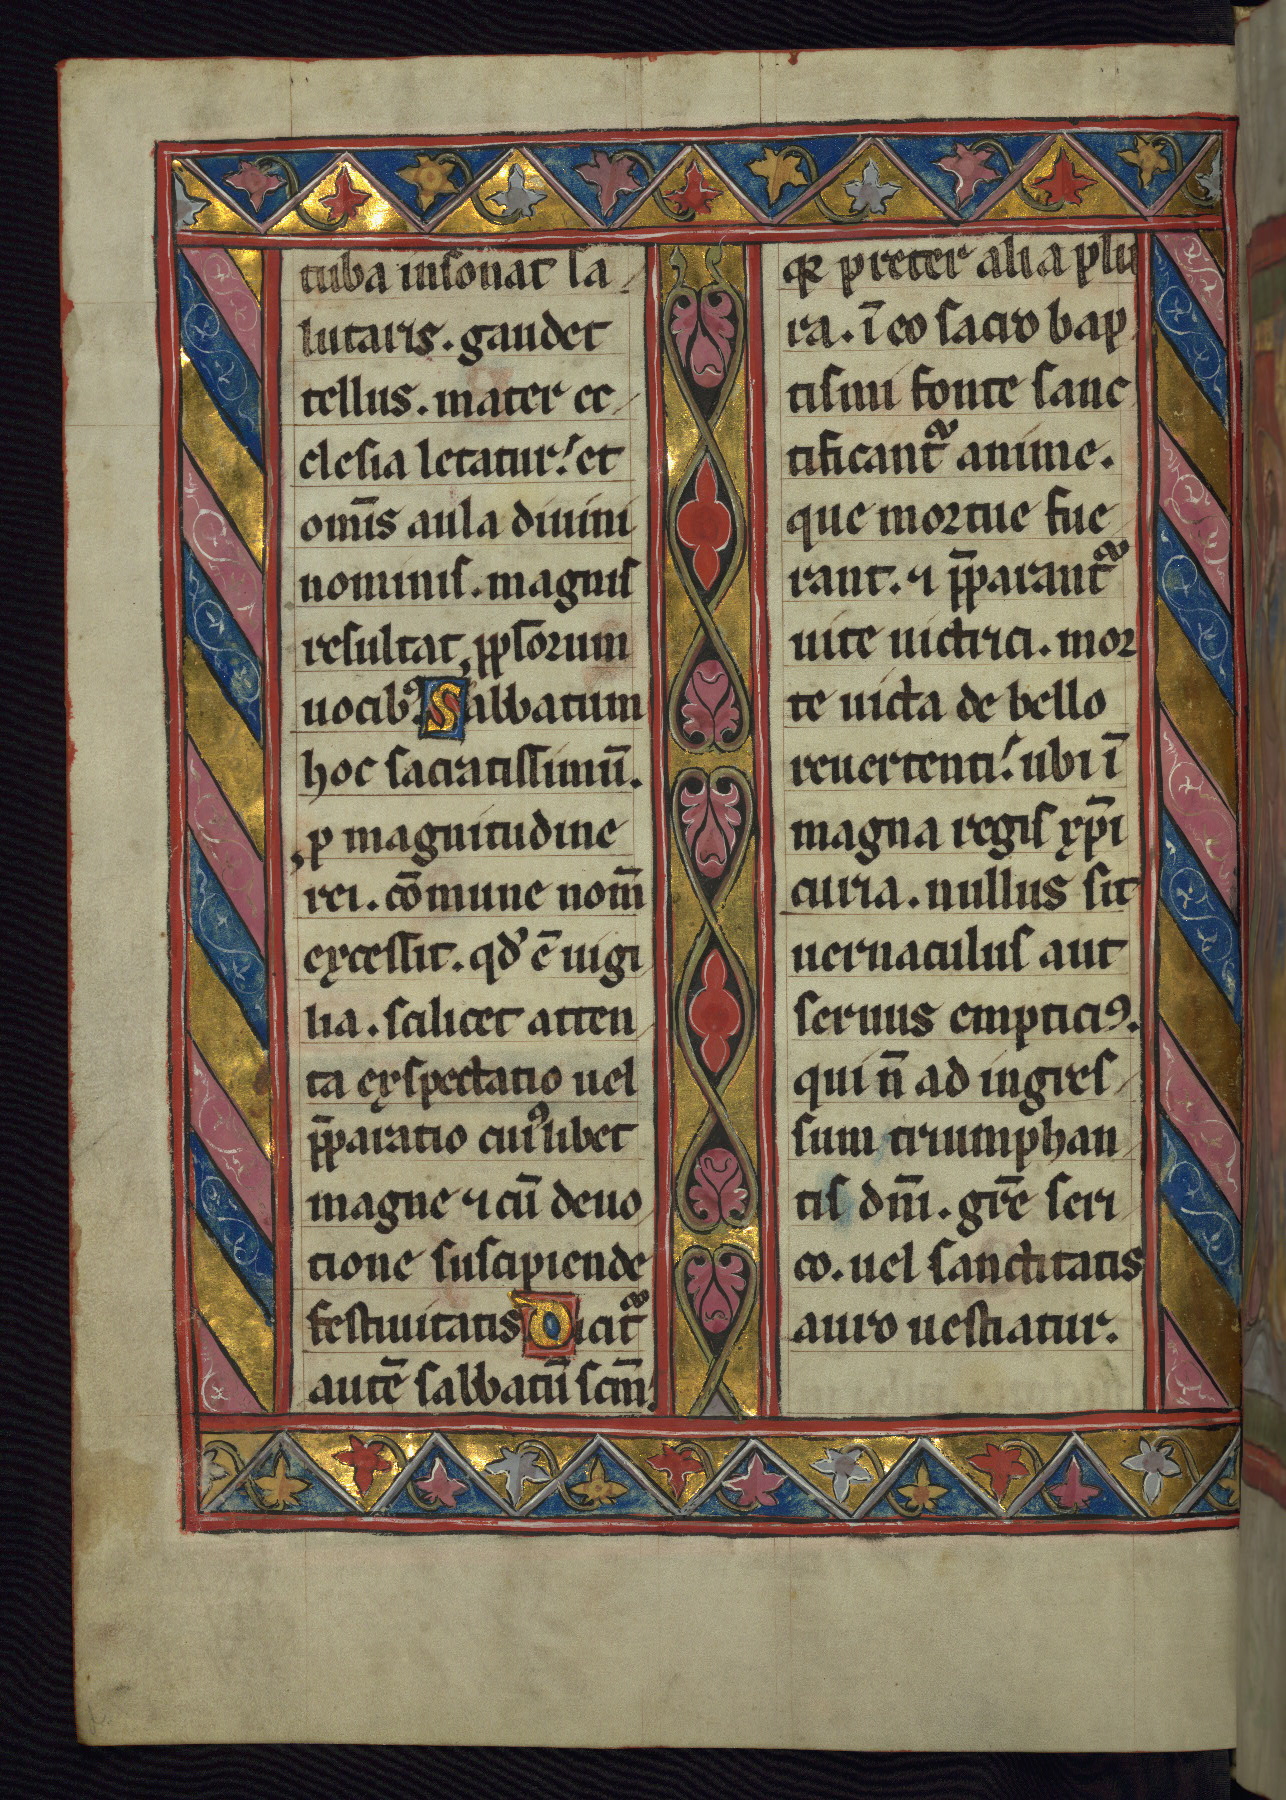 tuba insonat sa
lutaris. gaudet
tellus. mater ec
clesia letatur. et
om̅s aula diuini
nominis. magnis
resultat ꝑpsorum
uocib᷒. Sabbatum
hoc sacratissimu̅.
ꝓ magnitudine
rei. co̅mune nom̅
excessit. qd̕ e̅ uigi
lia. scilicet atten
ta exspectatio uel
p̅paratio cui᷒libet
magne ⁊ cu̅ deuo
tione suscipiende
festiuitatis. Dicit᷑
aute̅ sabbatu̅ scm̅.
qꝛ preter alia plu
ra. i̅ eo sacro bap
tismi fonte sanc
tificant᷑ anime.
que mortue fue
rant. ⁊ p̅parant᷑
uite uictrici. mor
te uicta de bello
reuertenti. ubi i̅
magna regis xp̅i
curia. nullus sit
uernaculus aut
seruus emptici᷒.
qui n̅ ad ingres
sum triumphan
tis dn̅i. gr̅e seri
co. uel sanctitatis
auro uestiatur.